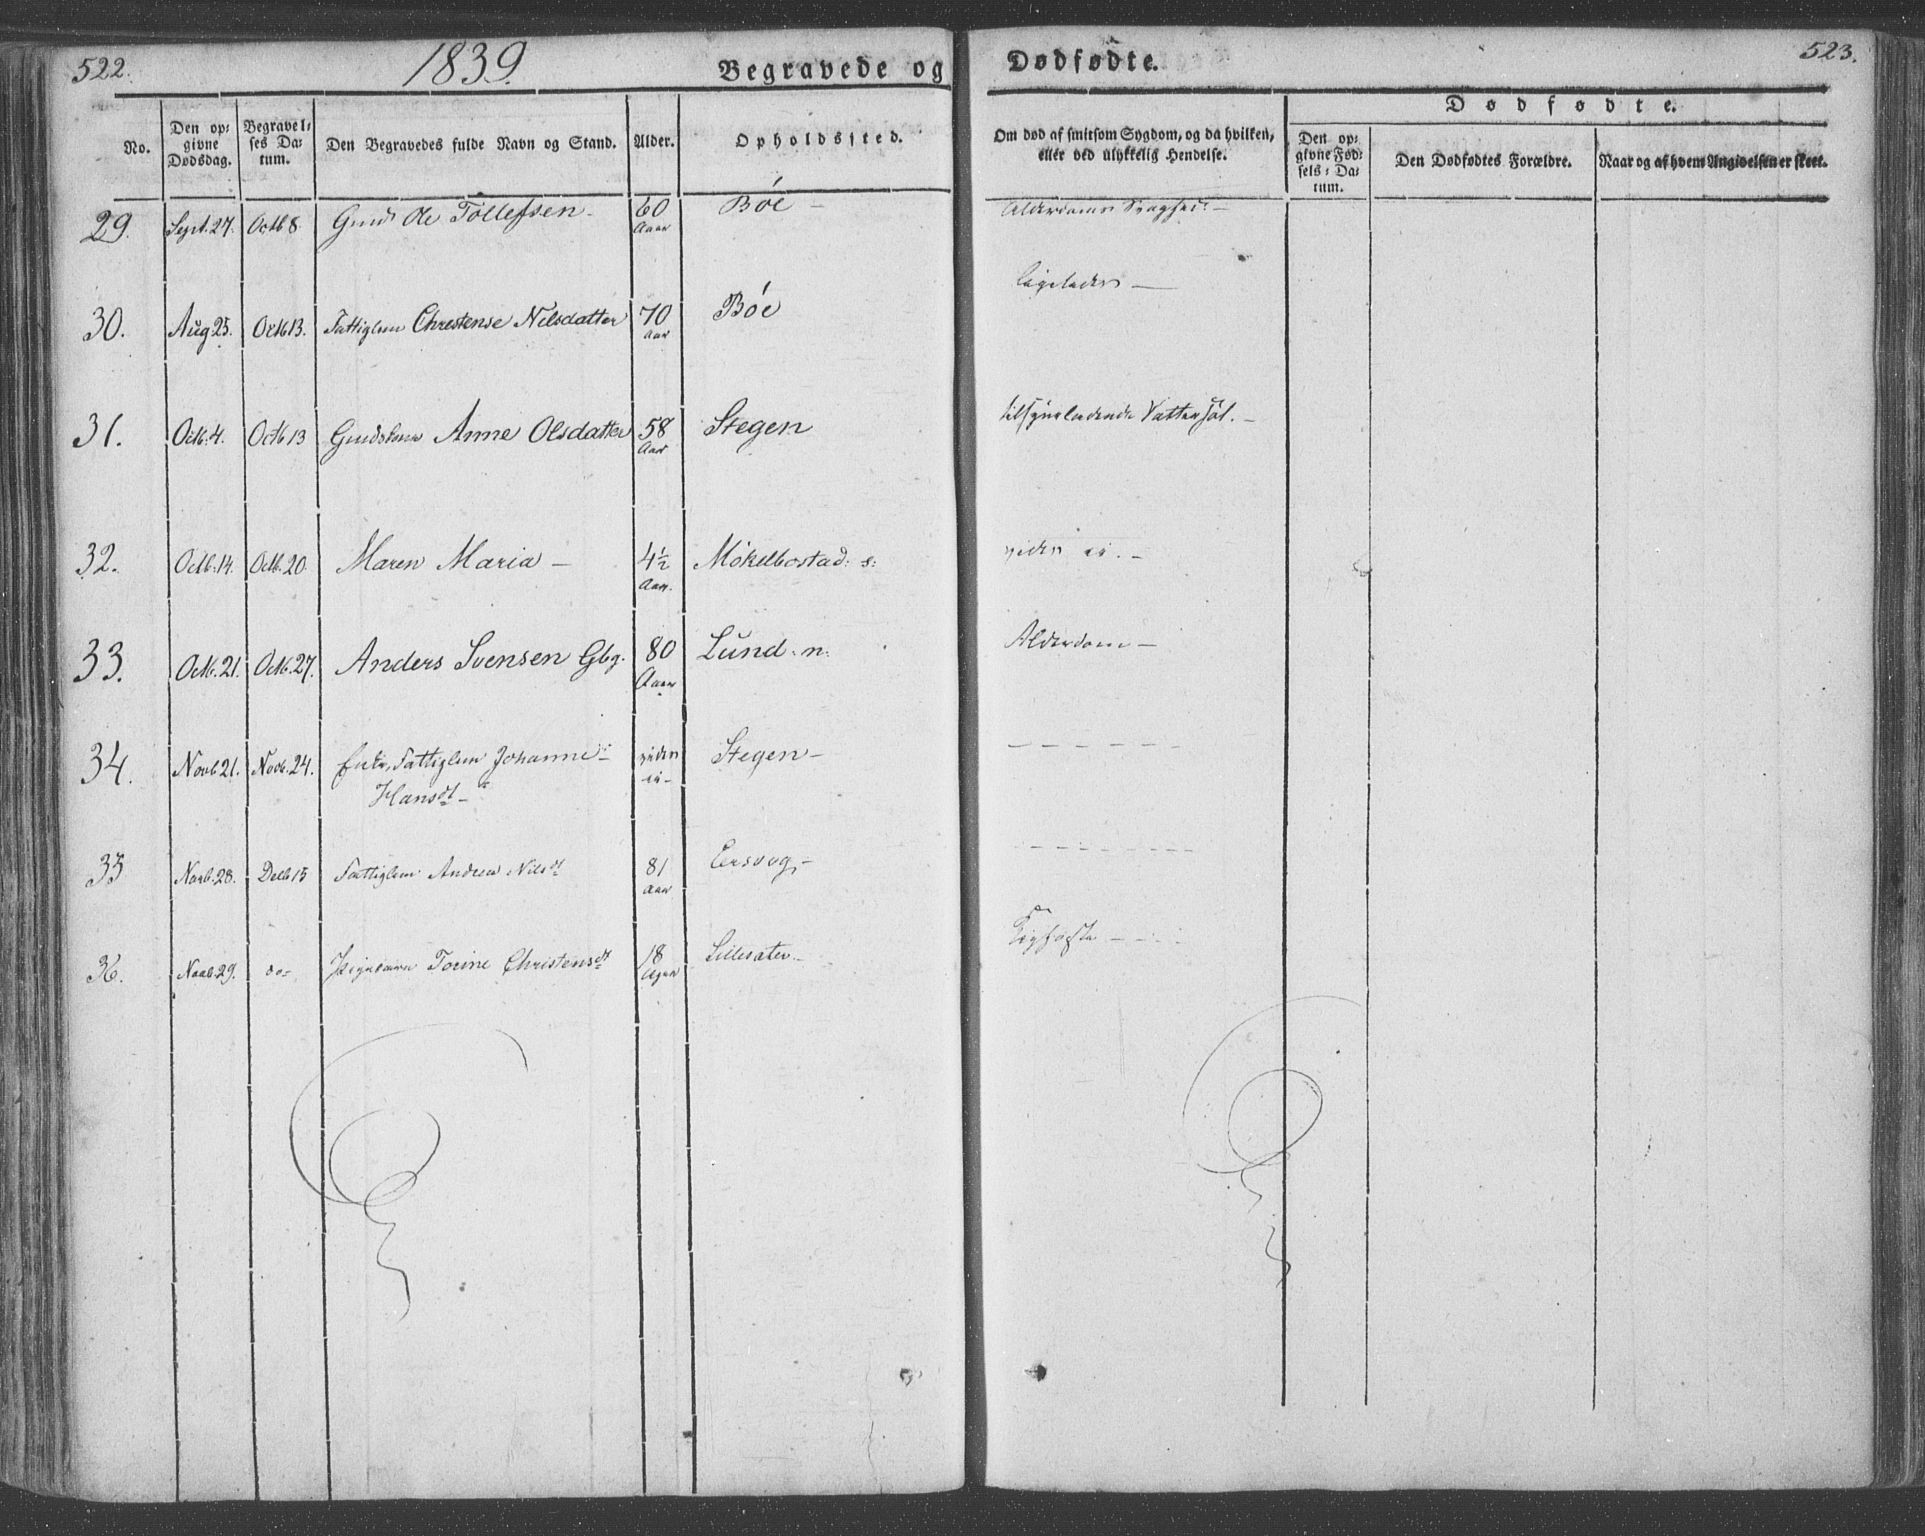 522.
1839.
Begravede og
Dødfødte.
523.
Dødfødte.
No.
Den op=
givne
Dødsdag.
Begravel=
ses Da=
tum.
Den Begravedes fulde Navn og Stand.
Alder.
Opholdssted.
Om død af smitsom Sygdom, og da hvilken,
eller ved ulykkelig Hendelse.
Den op=
givne Fød=
sels=Da=
tum.
Den Dødfødtes Forældre.
Naar og af hvem Angivelsen er skeet.
29. Sept. 27. Octb 8. Ole Tollefsen - 60 Bøe - Alderdoms Svaghed -
Aar
30. Aug 25. Octb 13. Fattiglem Christense Nilsdatter 70 Bøe ligeledes -
Aar
31. Octb. 4. Octb 13 Anne Olsdatter 58 Stegen Vattersot. -
Aar
32. Octb. 14. Octb. 20. Maren Maria - 4½ Møkelbostad: s: viden ei. -
Aar.
33. Octb. 21. Octb. 27. Anders Svensen Gbg. 80 Lund: n: Alderdom -
Aar
34. Novb 21. Novb. 24. Fattiglem Johanne viden Stegen -
Hansdt - ei -
35 Novb. 28. Decb 15 Fattiglem Andrea Nilsdt 81 -
Aar
36. Novb. 29. do - Torine Christensdt 18 -
Aar